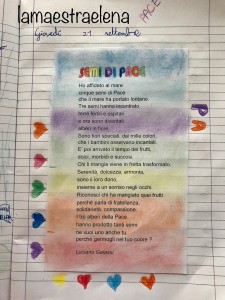 lamaestraelena
PACE
Giovedì 21 settembre
SEMI DI PACE
Ho affidato al mare
cinque semi di Pace
che il mare ha portato lontano.
Tre semi hanno incontrato
terre fertili e ospitali
e ora sono diventati
alberi in fiore.
Sono fiori speciali, dai mille colori,
che i bambini osservano incantati.
E' poi arrivato il tempo dei frutti,
dolci, morbidi e succosi.
Chi li mangia viene in fretta trasformato.
Serenità, dolcezza, armonia,
sono il loro dono,
insieme a un sorriso negli occhi.
Riconosci chi ha mangiato quei frutti
perché parla di fratellanza,
solidarietà, compassione.
I tre alberi della Pace
hanno prodotto tanti semi:
ne vuoi uno anche tu,
perché germogli nel tuo cuore ?